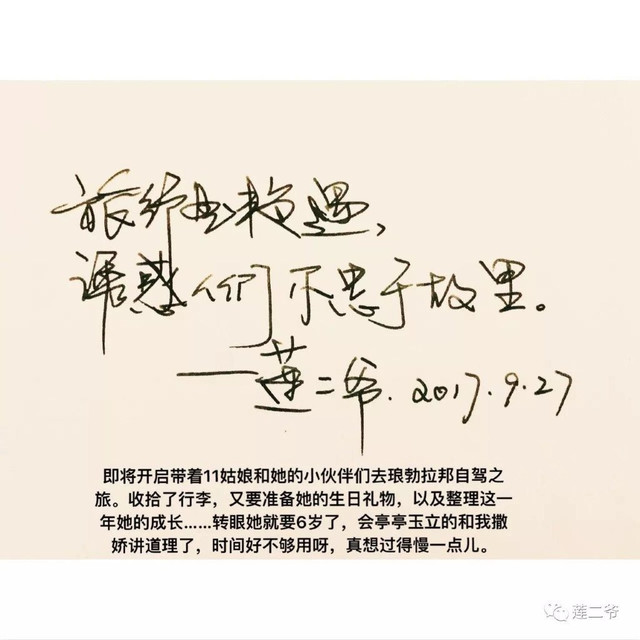 旅行出艳遇，
诱惑人们不忠于故里。
——莲二爷.2017.9.27
即将开启带着11姑娘和她的小伙伴们去琅勃拉邦自驾之
旅。收拾了行李，又要准备她的生日礼物，以及整理这一
年她的成长......转眼她就要6岁了，会亭亭玉立的和我撒
娇讲道理了，时间好不够用呀，真想过得慢一点儿。
莲二爷